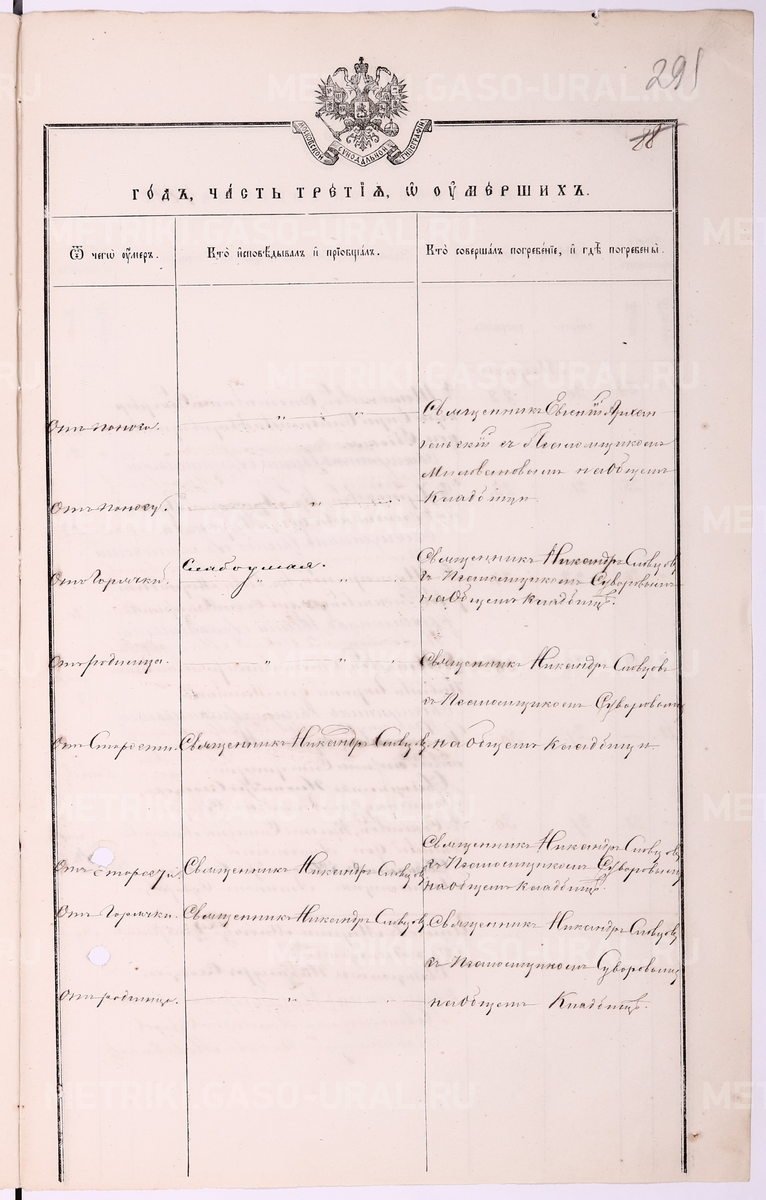 291
88
МОСКОВСКОЙ СѴНОДАЛЬНОЙ ТИПОГРАФІИ
го́дъ, ча́сть тре́тїѧ, ѡ҆ ᲂу҆ме́ршихъ.
Ѿ чегѡ̀ ᲂу҆́меръ.
Кто̀ и҆сповѣ́дывалъ и҆ прїѡбща́лъ.
Кто̀ соверша́лъ погребе́нїе, и҆ гдѣ̀ погребены̀.
Священникъ Евгеній Архан
гельскій съ Псаломщикомъ
Отъ поноса.
Миловановымъ на Общемъ
Кладбищи
Отъ поносу.
Слабоумая.
Священникъ Никандръ Словцовъ
Отъ Горячки.
съ Псаломщикомъ Суворовымъ
на Общемъ кладбищѣ.
Отъ родимца.
Священникъ Никандръ Словцовъ
съ Псаломщикомъ Суворовымъ
Отъ Старости.
Священникъ Никандръ Словцовъ
на Общемъ кладбищи
Священникъ Никандръ Словцовъ
Отъ старости.
Священникъ Никандръ Словцовъ
съ Псаломщикомъ Суворовымъ
на общемъ кладбищѣ.
Отъ Горячки.
Священникъ Никандръ Словцовъ
Священникъ Никандръ Словцовъ
съ Псаломщикомъ Суворовымъ
Отъ родимца.
на Общемъ Кладбищѣ.
METRIKI.GASO-URAL.RU